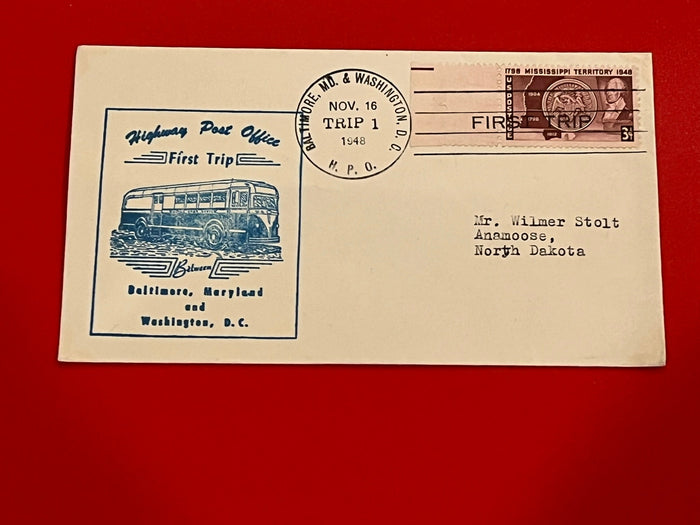 Highway Post Office
First Trip
Between
Baltimore, Maryland
and
Washington, D.C.
BALTIMORE, MD. & WASHINGTON, D. C.
NOV. 16
TRIP 1
1948
H. P. O.
1798 MISSISSIPPI TERRITORY 1948
U.S. POSTAGE
1804
1798
1812
3¢
FIRST TRIP
Mr. Wilmer Stolt
Anamoose,
North Dakota